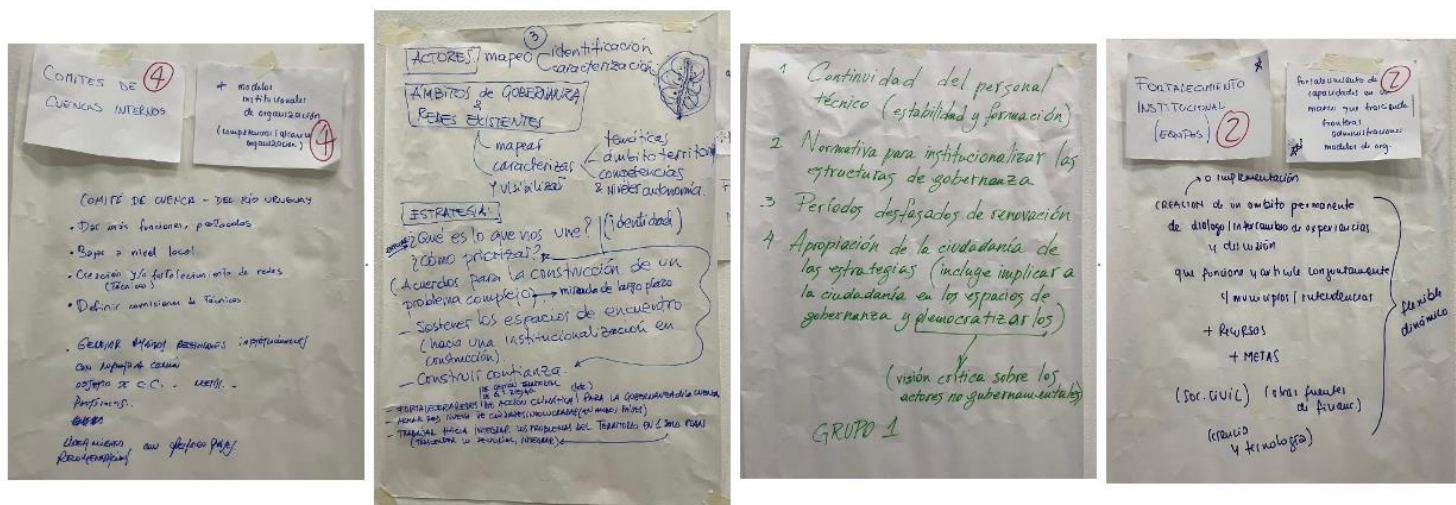 COMITES DE 4
CUENCAS INTERNOS
+ modelos
institucionales
de organización
(competencias / alcance
organización) 4
COMITÉ DE CUENCA - DEL RÍO URUGUAY
• Dar más funciones, 
• Bajar a nivel local
• Creación y/o fortalecimiento de redes
(Técnicos)
• Definir comisiones de Técnicos
• GENERAR
con
DE C.C.
3
ACTORES mapeo identificación
caracterización
ÁMBITOS de GOBERNANZA
&
REDES EXISTENTES
mapear
caracterizar
y visibilizar
temáticas
ámbito territorial
competencias
& niveles autonomía.
ESTRATEGIA:
¿Qué es lo que nos une? (identidad)
¿Cómo priorizar?
(Acuerdos para la construcción de un
problema complejo) → mirada de largo plazo
- Sostener los espacios de encuentro
(hacia una institucionalización en
construcción).
- Construir confianza.
- FORTALECER REDES DE ACCIÓN CLIMÁTICA PARA LA GOBERNANZA DE LA CUENCA
- TRABAJAR HACIA INTEGRAR LOS PROBLEMAS DEL TERRITORIO EN 1 SOLO PLAN
1 Continuidad del personal
técnico (estabilidad y formación)
2 Normativa para institucionalizar las
estructuras de gobernanza
.3 Períodos desfasados de renovación
4 Apropiación de la ciudadanía de
las estrategias (incluye implicar a
la ciudadanía en los espacios de
gobernanza y democratizarlos)
(visión crítica sobre los
actores no gubernamentales)
GRUPO 1
FORTALECIMIENTO
INSTITUCIONAL
(EQUIPOS) 2
fortalecimiento de 2
capacidades en un
marco que trascienda
fronteras
administraciones
modelos de org.
→ o implementación
CREACIÓN de un ambito permanente
de diálogo / intercambio de experiencias
y discusión
que funcione y articule conjuntamente
c/ municipios / intendencias
+ RECURSOS
+ METAS
(soc. civil) (otras fuentes
de financ.)
(ciencia
y tecnología)
flexible
dinámico